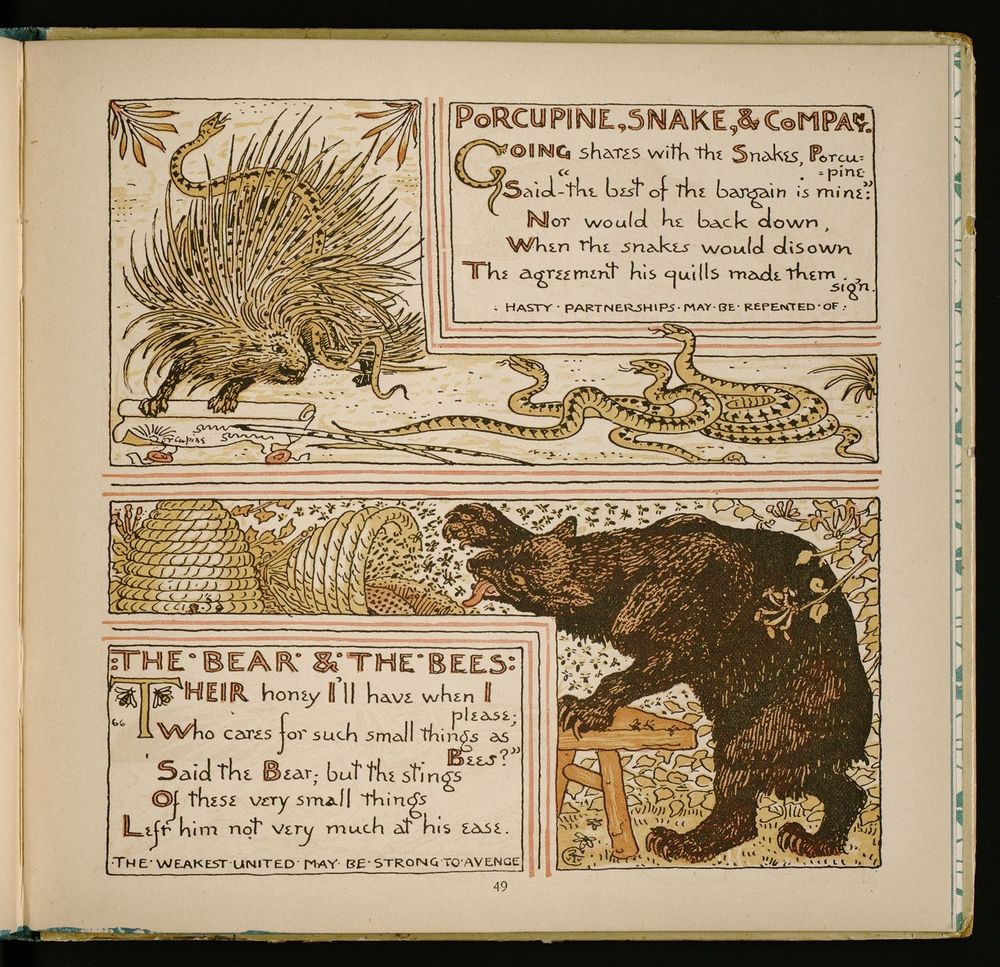 PORCUPINE, SNAKE, & COMPAY.
GOING shares with the Snakes, Porcu:
=pine
Said-"the best of the bargain is mine:"
Nor would he back down,
When the snakes would disown
The agreement his quills made them
sign.
: HASTY · PARTNERSHIPS · MAY · BE · REPENTED · OF :
Porcupine
:THE · BEAR · & · THE · BEES:
"THEIR honey I'll have when I
please;
Who cares for such small things as
Bees?"
Said the Bear; but the stings
Of these very small things
Left him not very much at his ease.
·THE · WEAKEST · UNITED · MAY · BE · STRONG · TO · AVENGE
49